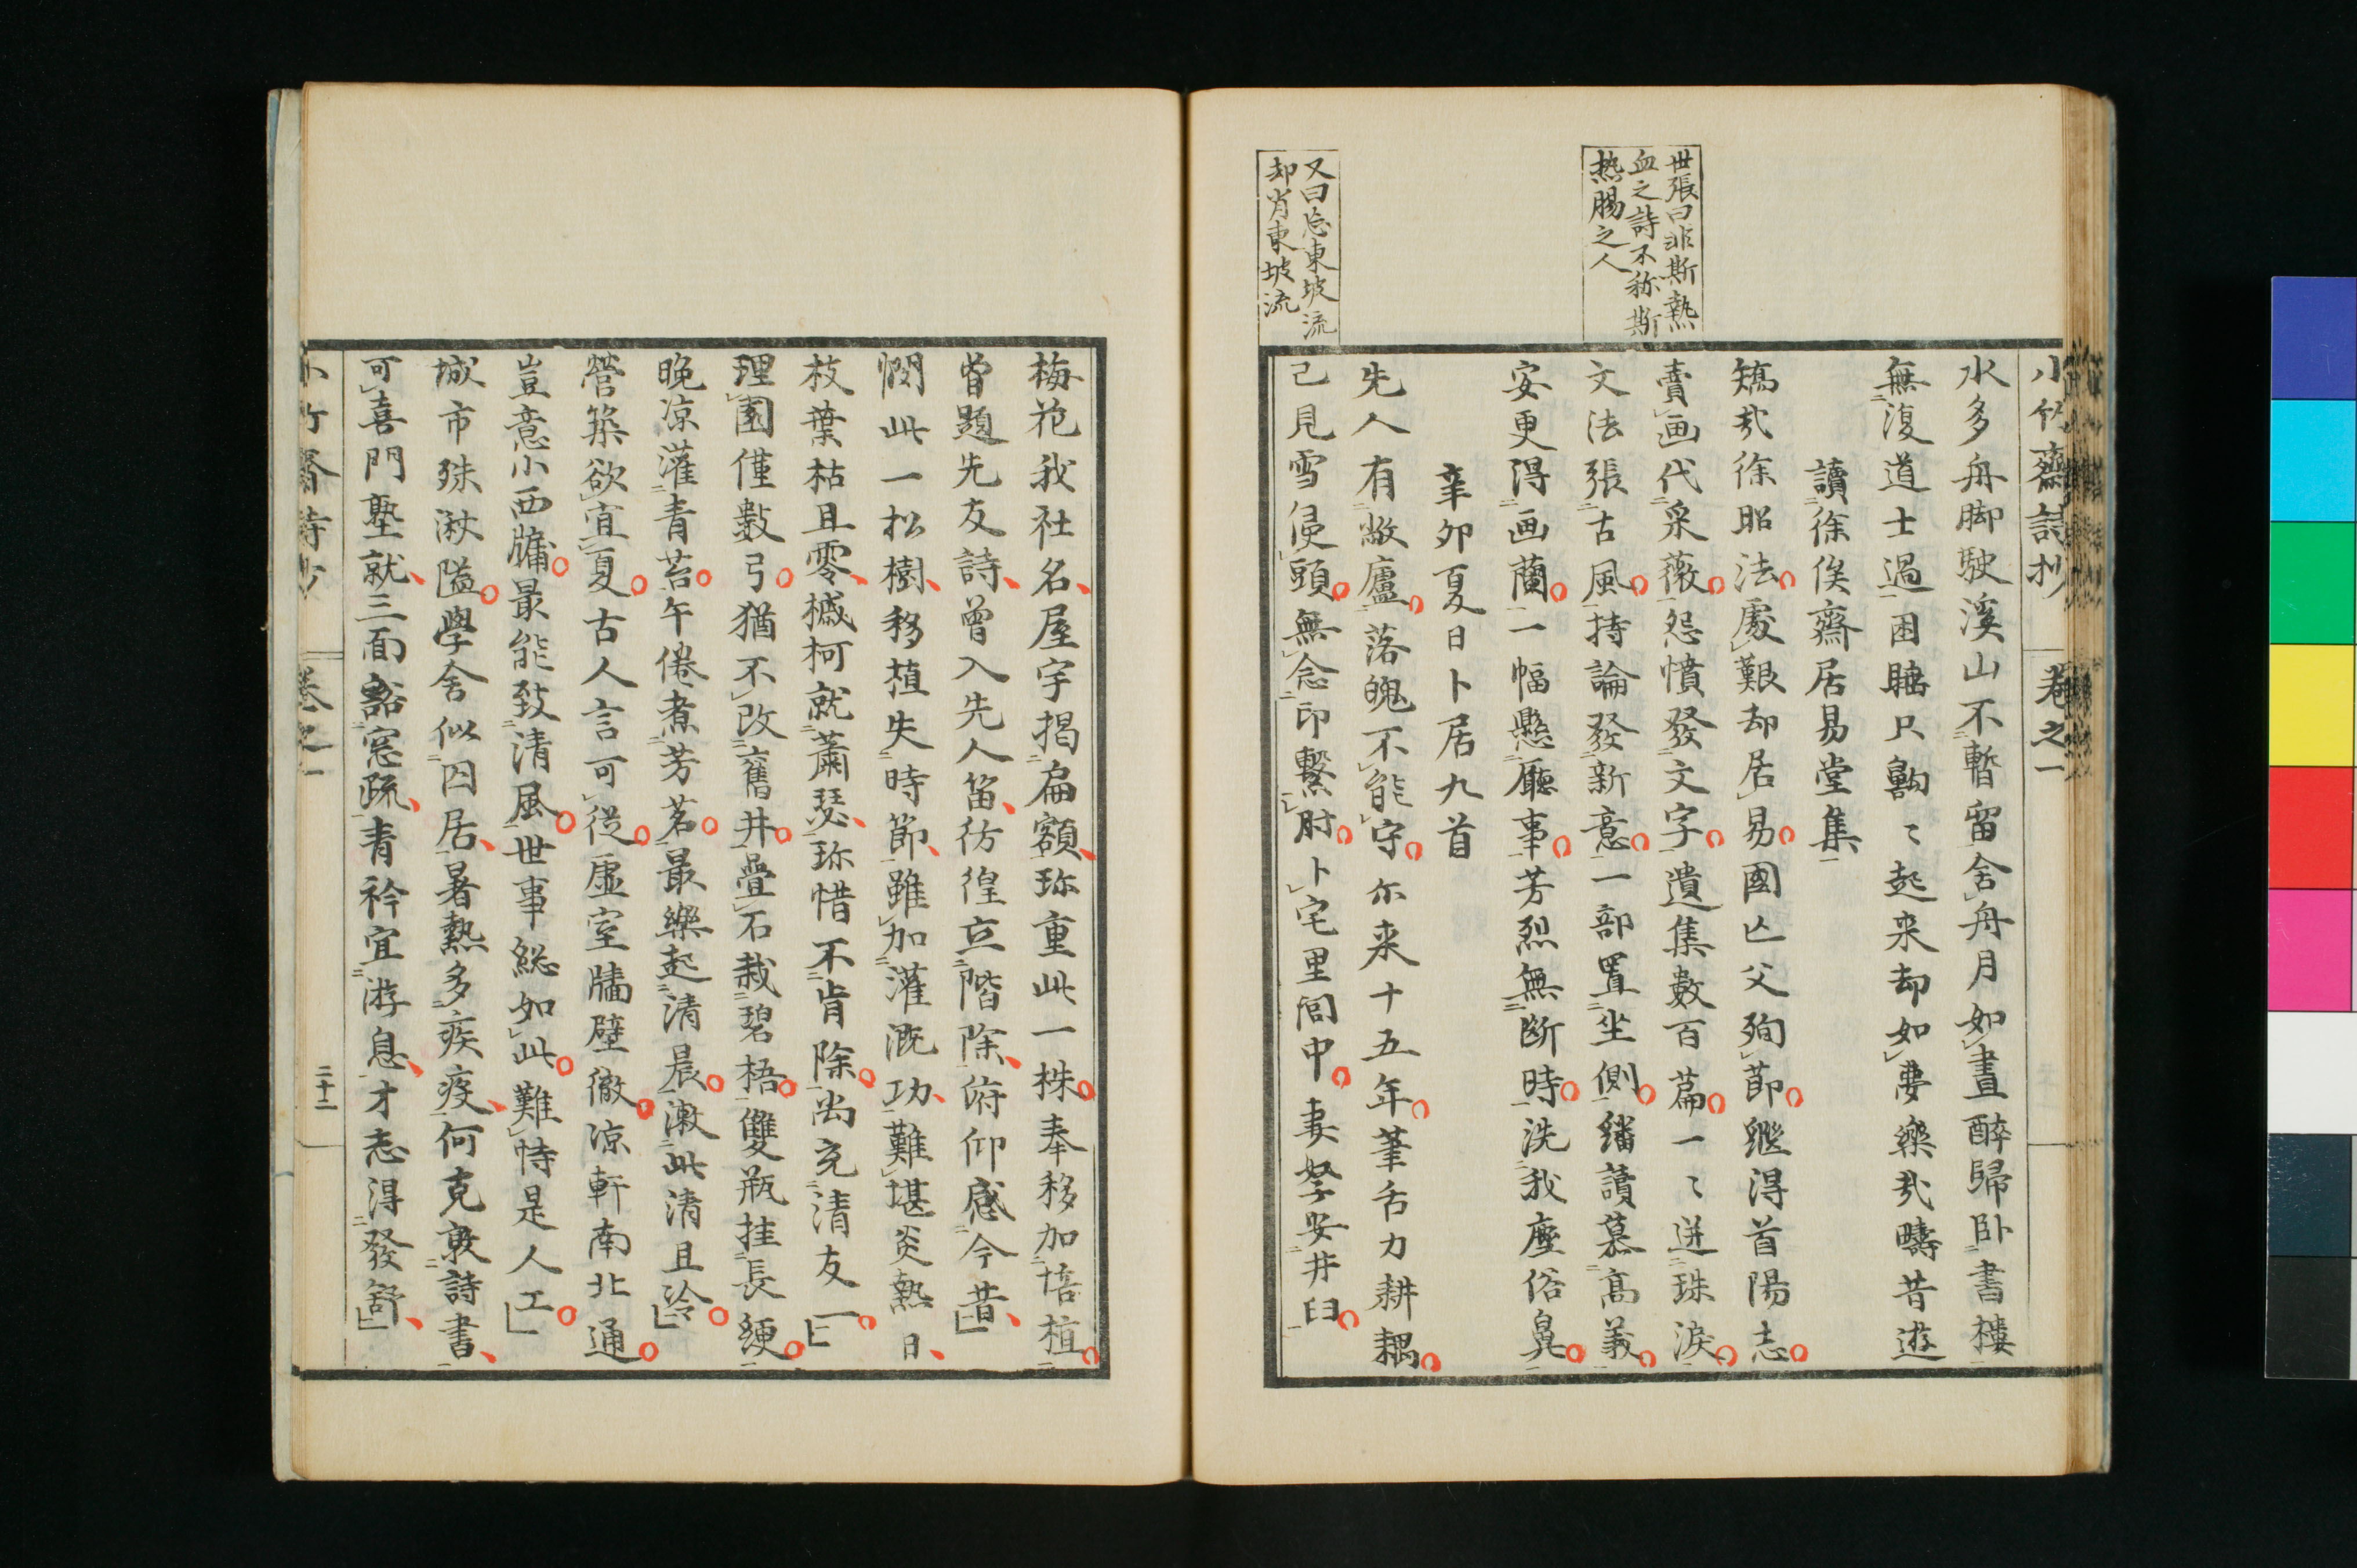 世張曰非斯熱
血之詩不称斯
热腸之人
又曰忘東坡流
却肖東坡流
小竹齋詩抄 卷之一
水多舟脚駛溪山不暫留舍舟月如晝醉歸卧書樓
無復道士過困睡只齁〻起来却如夢樂哉疇昔遊
讀徐俟齋居易堂集
矯哉徐昭法處艱却居易國亡父殉節継得首陽志
賣画代采薇怨憤發文字遺集數百篇一〻迸珠淚
文法張古風持論發新意一部置坐側繙讀慕高義
安更得画蘭一幅懸廳事芳烈無断時洗我塵俗鼻
辛夘夏日卜居九首
先人有敝廬落魄不能守尓来十五年筆舌力耕耦
己見雪侵頭無念印繫肘卜宅里閭中妻孥安井臼
梅花我社名屋字揭扁額珎重此一株奉移加培植
曾題先友詩曾入先人笛彷徨立階除俯仰感今昔
憫此一松樹移植失時節雖加灌溉功難堪炎熱日
枝葉枯且零槭柯就蕭瑟珎惜不肯除尚充清友一
理園僅數弓猶不改舊井疊石栽碧梧雙瓶挂長綆
晚凉灌青苔午倦煮芳茗最樂起清晨漱此清且冷
營築欲宜夏古人言可従虚室牆壁徹凉軒南北通
豈意小西牖最能致清風世事総如此難恃是人工
城市殊湫隘學舍似囚居暑熱多疾疫何克敦詩書
可喜門塾就三面豁窓疏青衿宜游息才志得發舒
小竹齋詩抄 卷之一 二十二